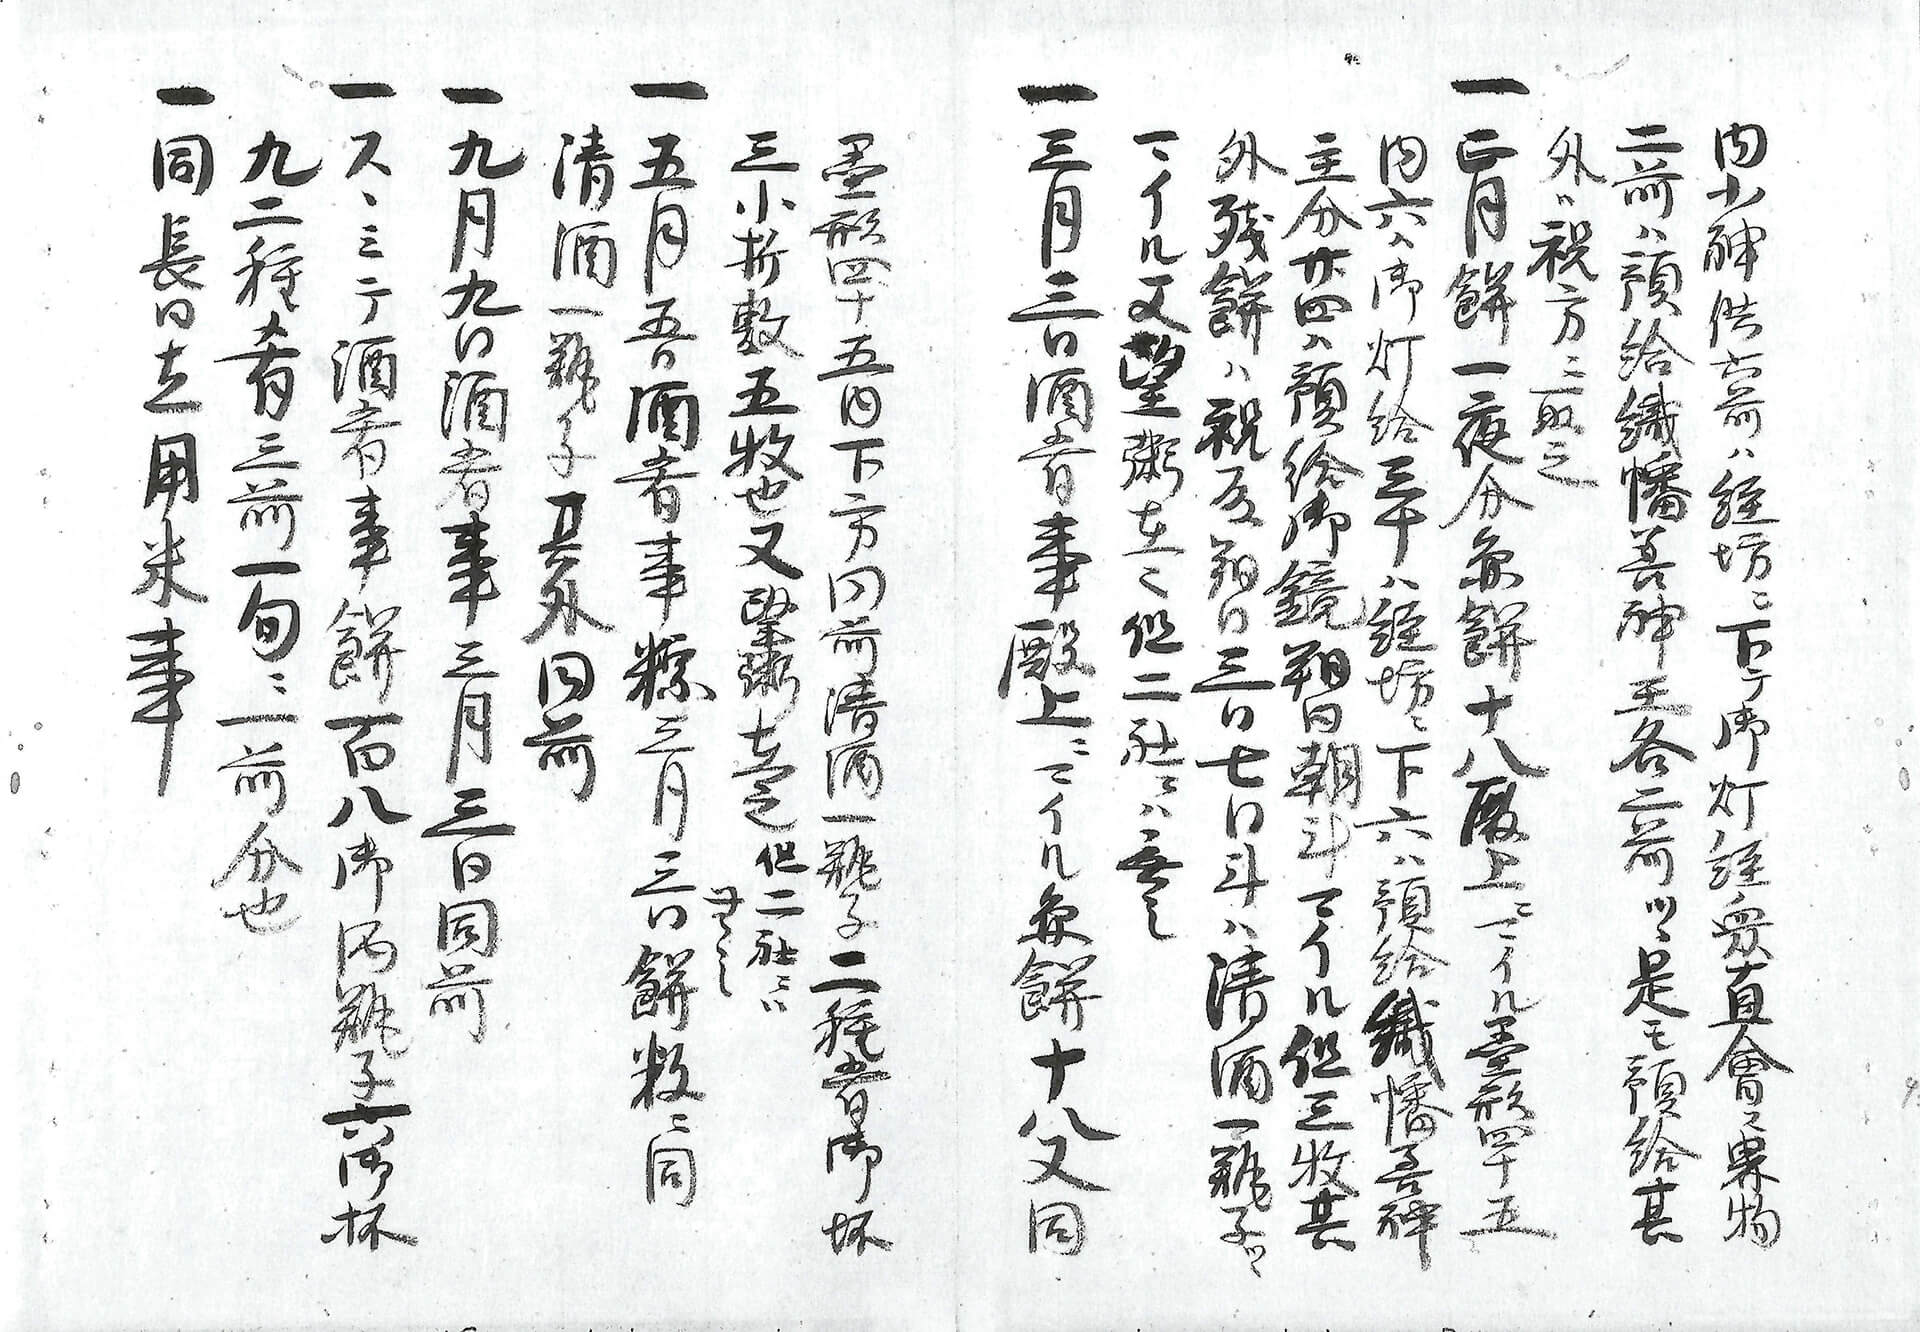 内小神供六前ハ経坊ニ下テ御灯経衆直會ニ果物
二前ハ預給織幡善神王各二前ツヽ是モ預給其
外ハ祝方ニ取之
一正月餅一夜分魚餅十八殿上ニマイル墨形四十五
内六ハ御灯給三十ハ経坊ニ下六ハ預給織幡善神
主分廿四ハ預給御鏡朔日朝斗マイル但三枚其
外残餅ハ祝取朔日三日七日斗ハ清酒一瓶子ツヽ
マイル又望粥在之但二社ニハ無之
一三月三日酒肴事殿上ニマイル魚餅十八又同
墨形四十五内下方同前清酒一瓶子二種肴御坏
三小折敷五枚也又望粥在之但二社ニハ
無之
一五月五日酒肴事粽三月三日餅数ニ同
清酒一瓶子其外同前
一九月九日酒肴事三月三日同前
一スヽミテ酒肴事餅百八御酒瓶子六御杯
九二種肴三前一旬ニ一前分也
一同長日立用米事